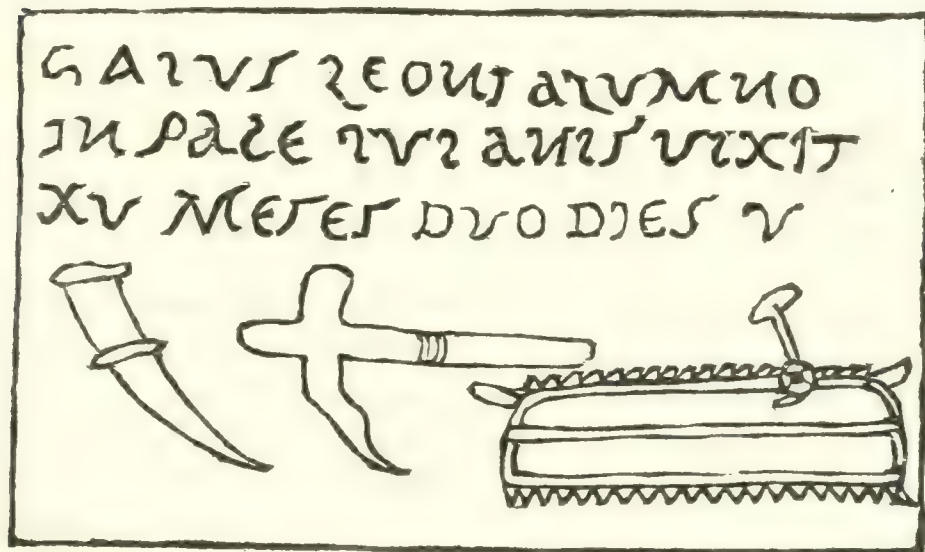 GAIVS LEONI ALVMNO
IN PACE IVI ANIS VIXIT
XV MESES DVO DIES V